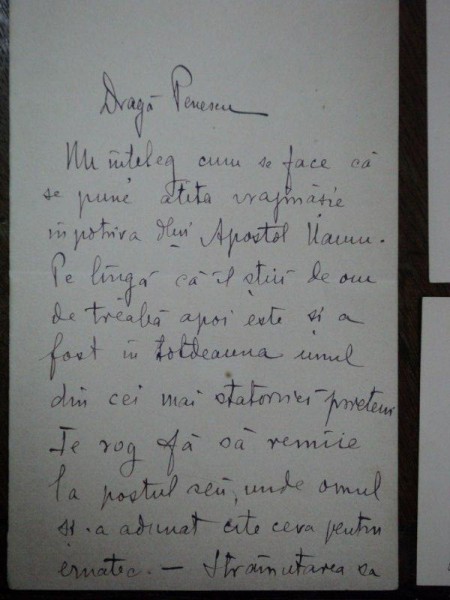 Dragă Penescu
Nu înțeleg cum se face că
se pune atîta vrajmășie
împotriva dlui Apostol Naum.
Pe lîngă că-l știi de om
de treabă apoi este și a
fost în totdeauna unul
din cei mai statornici prieteni
Te rog fă să remîie
la postul seu, unde omul
și-a adunat cîte ceva pentru
ernatec. — Strămutarea sa